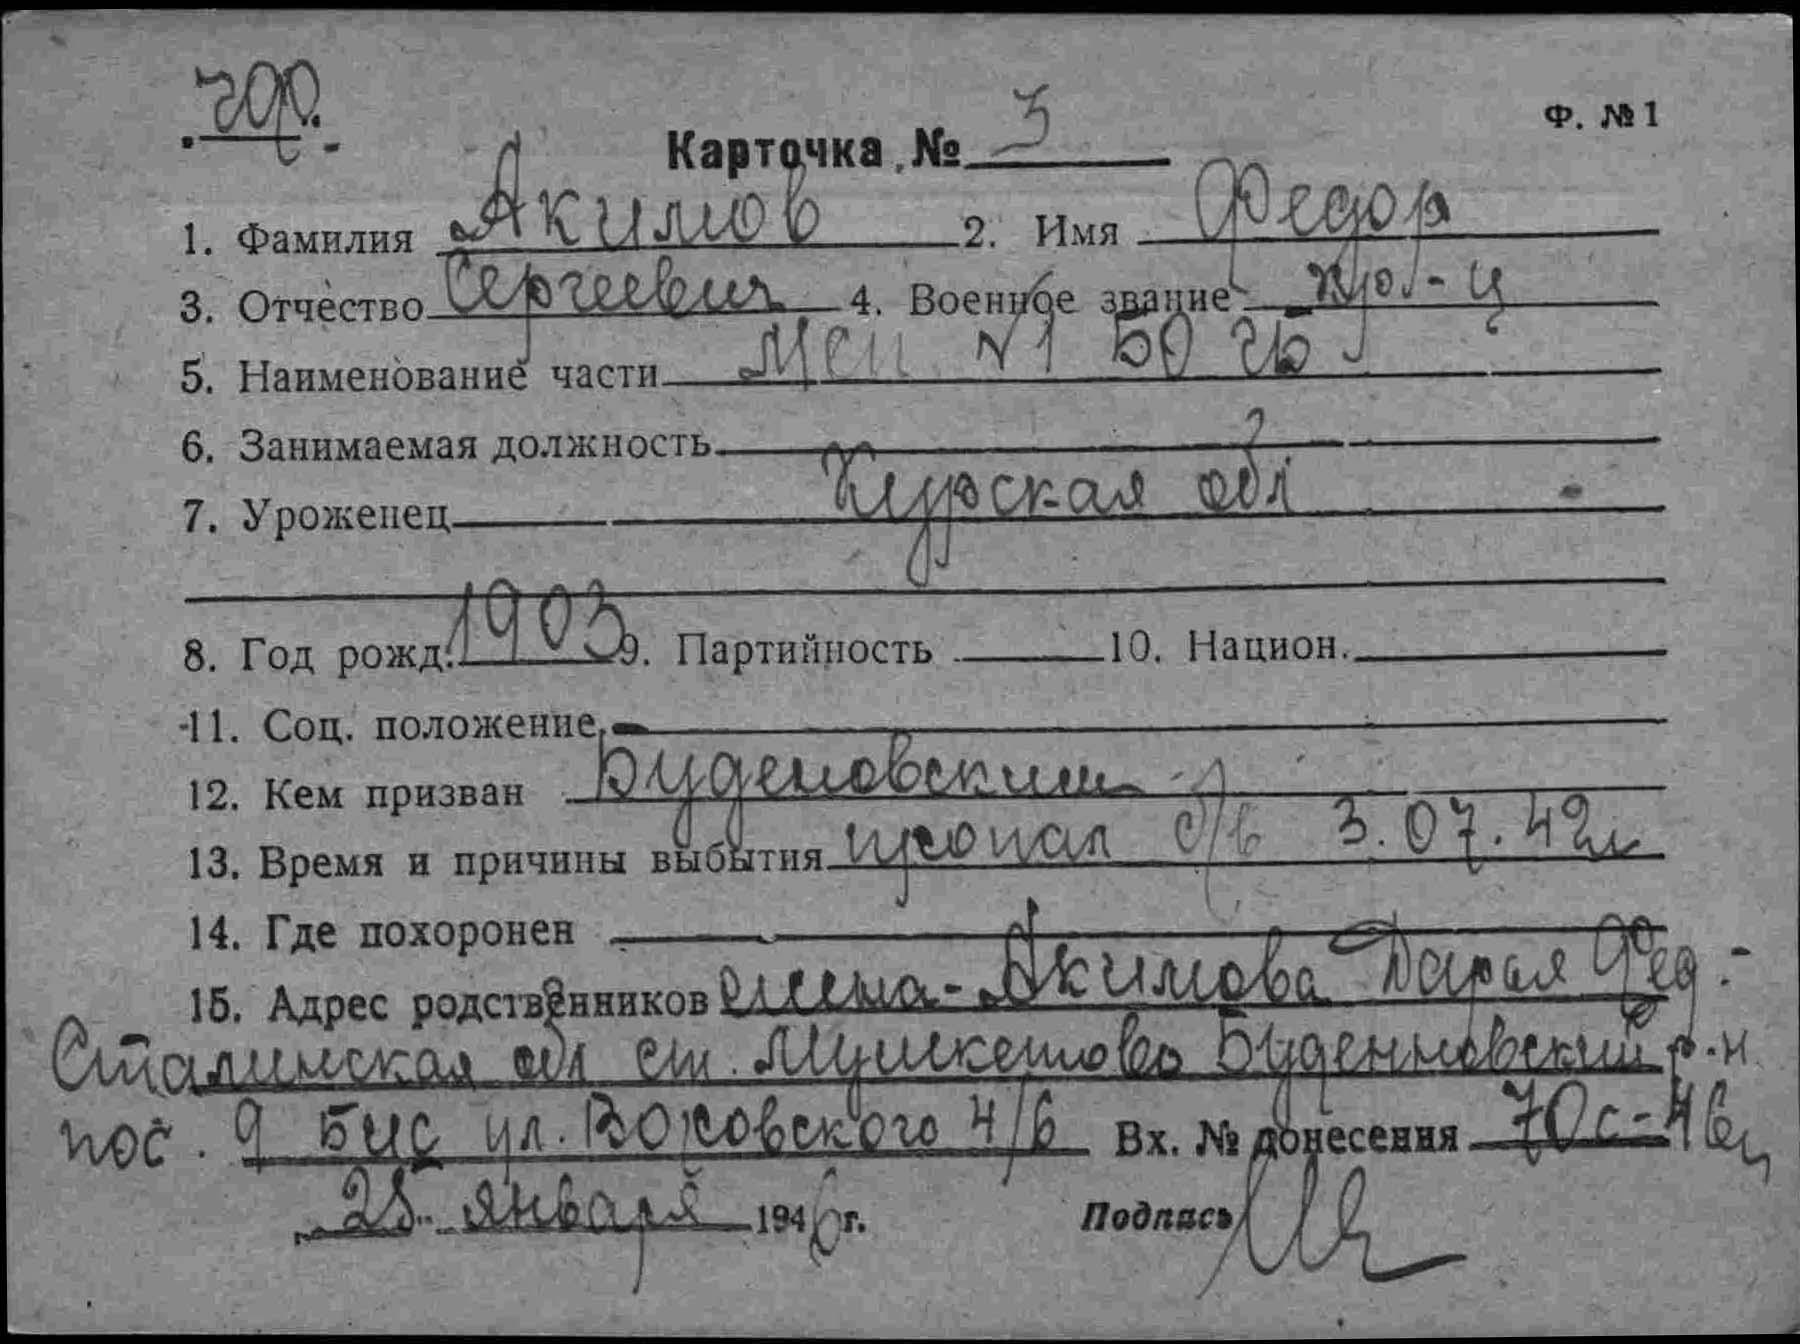 Ф. №1
Карточка № 3
1. Фамилия Акимов 2. Имя Федор
3. Отчество Сергеевич 4. Военное звание кр-ц
5. Наименование части №1 БО ЧФ
6. Занимаемая должность ?
7. Уроженец Курская обл
8. Год рожд. 1903 9. Партийность 10. Национ.
11. Соц. положение
12. Кем призван Буденовским
13. Время и причины выбытия пропал б/в 3.07.42г
14. Где похоронен
15. Адрес родственников жена - Акимова Дарья Фед. -
Сталинская обл ст. Мушкетово Буденновский р-н
пос. 9 Бис ул. 4/6 Вх. № донесения 70с-46г
25 января 1946 г. Подпись